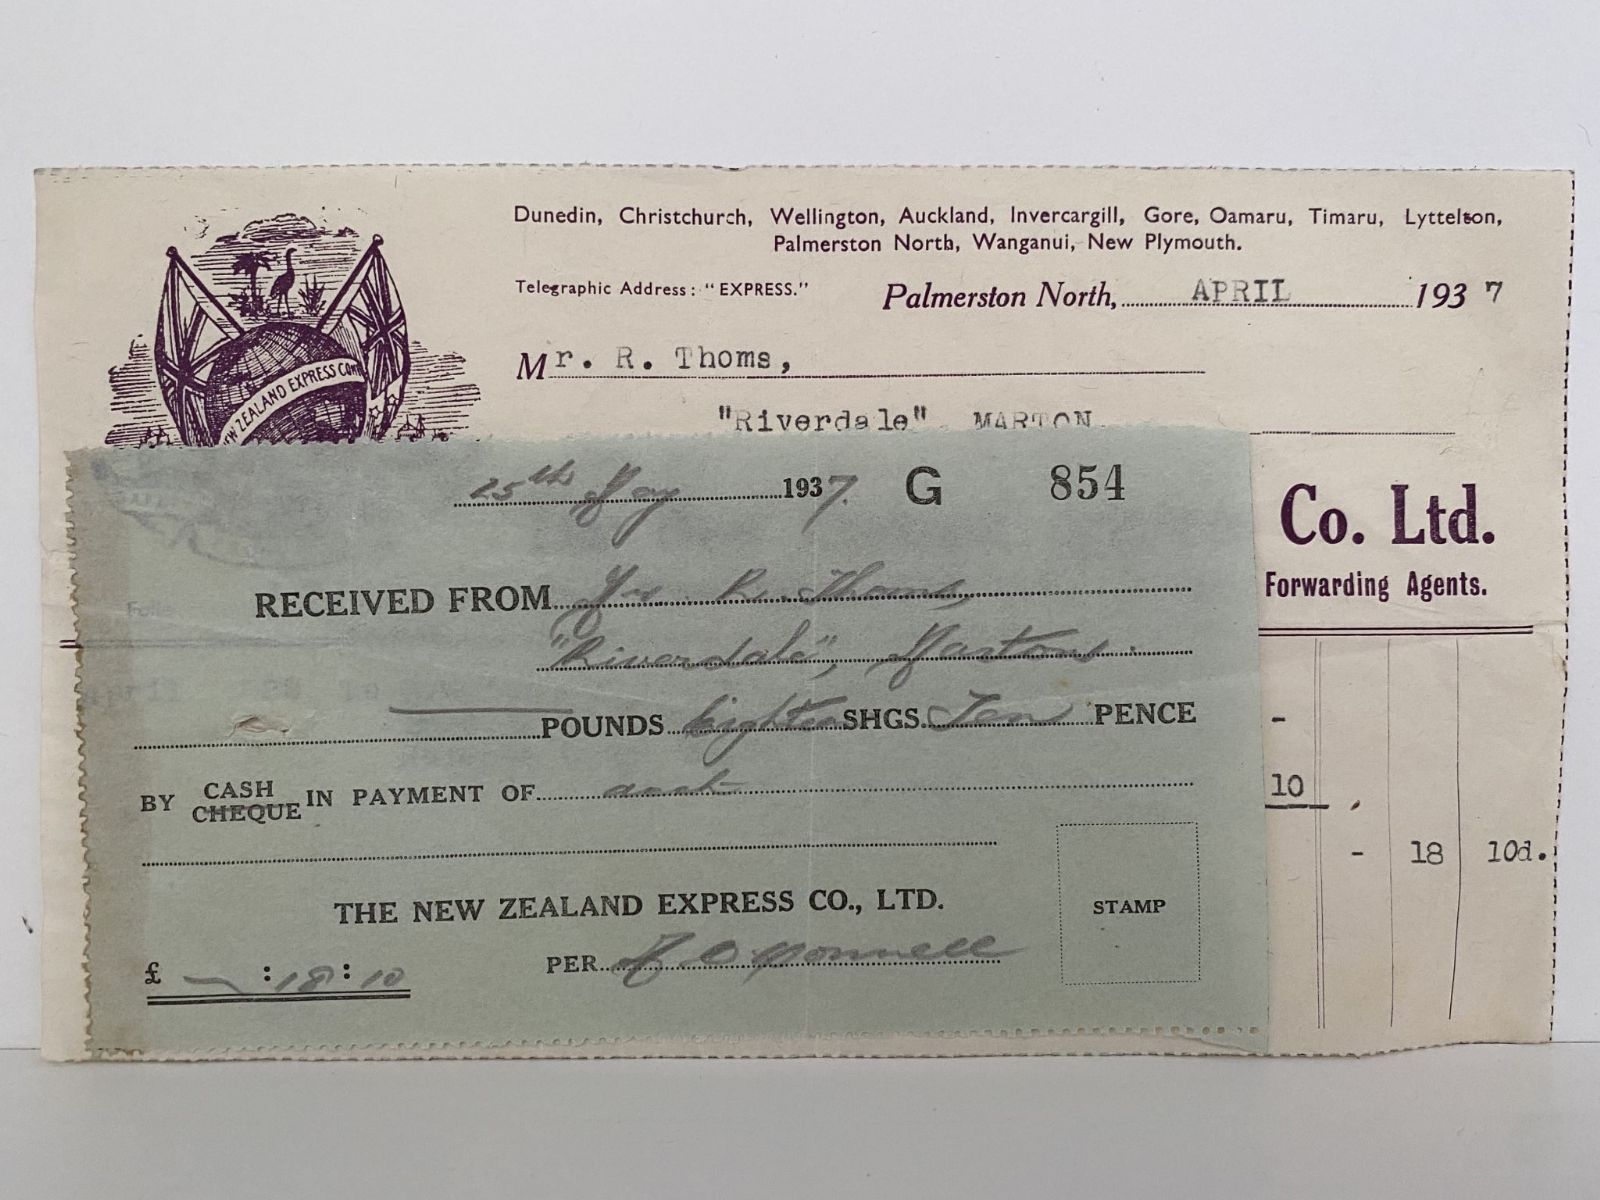 Dunedin, Christchurch, Wellington, Auckland, Invercargill, Gore, Oamaru, Timaru, Lyttelton,
Palmerston North, Wanganui, New Plymouth.
Telegraphic Address: "EXPRESS."
Palmerston North, APRIL 1937
Mr. R. Thoms,
"Riverdale", MARTON.
ZEALAND EXPRESS COM
Co. Ltd.
Forwarding Agents.
-
10
- 18 10d.
25th May 1937. G 854
RECEIVED FROM Mr R. Thoms,
"Riverdale", Marton.
POUNDS Eighteen SHGS. Ten PENCE
BY CASH CHEQUE IN PAYMENT OF acct
THE NEW ZEALAND EXPRESS CO., LTD.
STAMP
£ — : 18 : 10
PER O'Connell